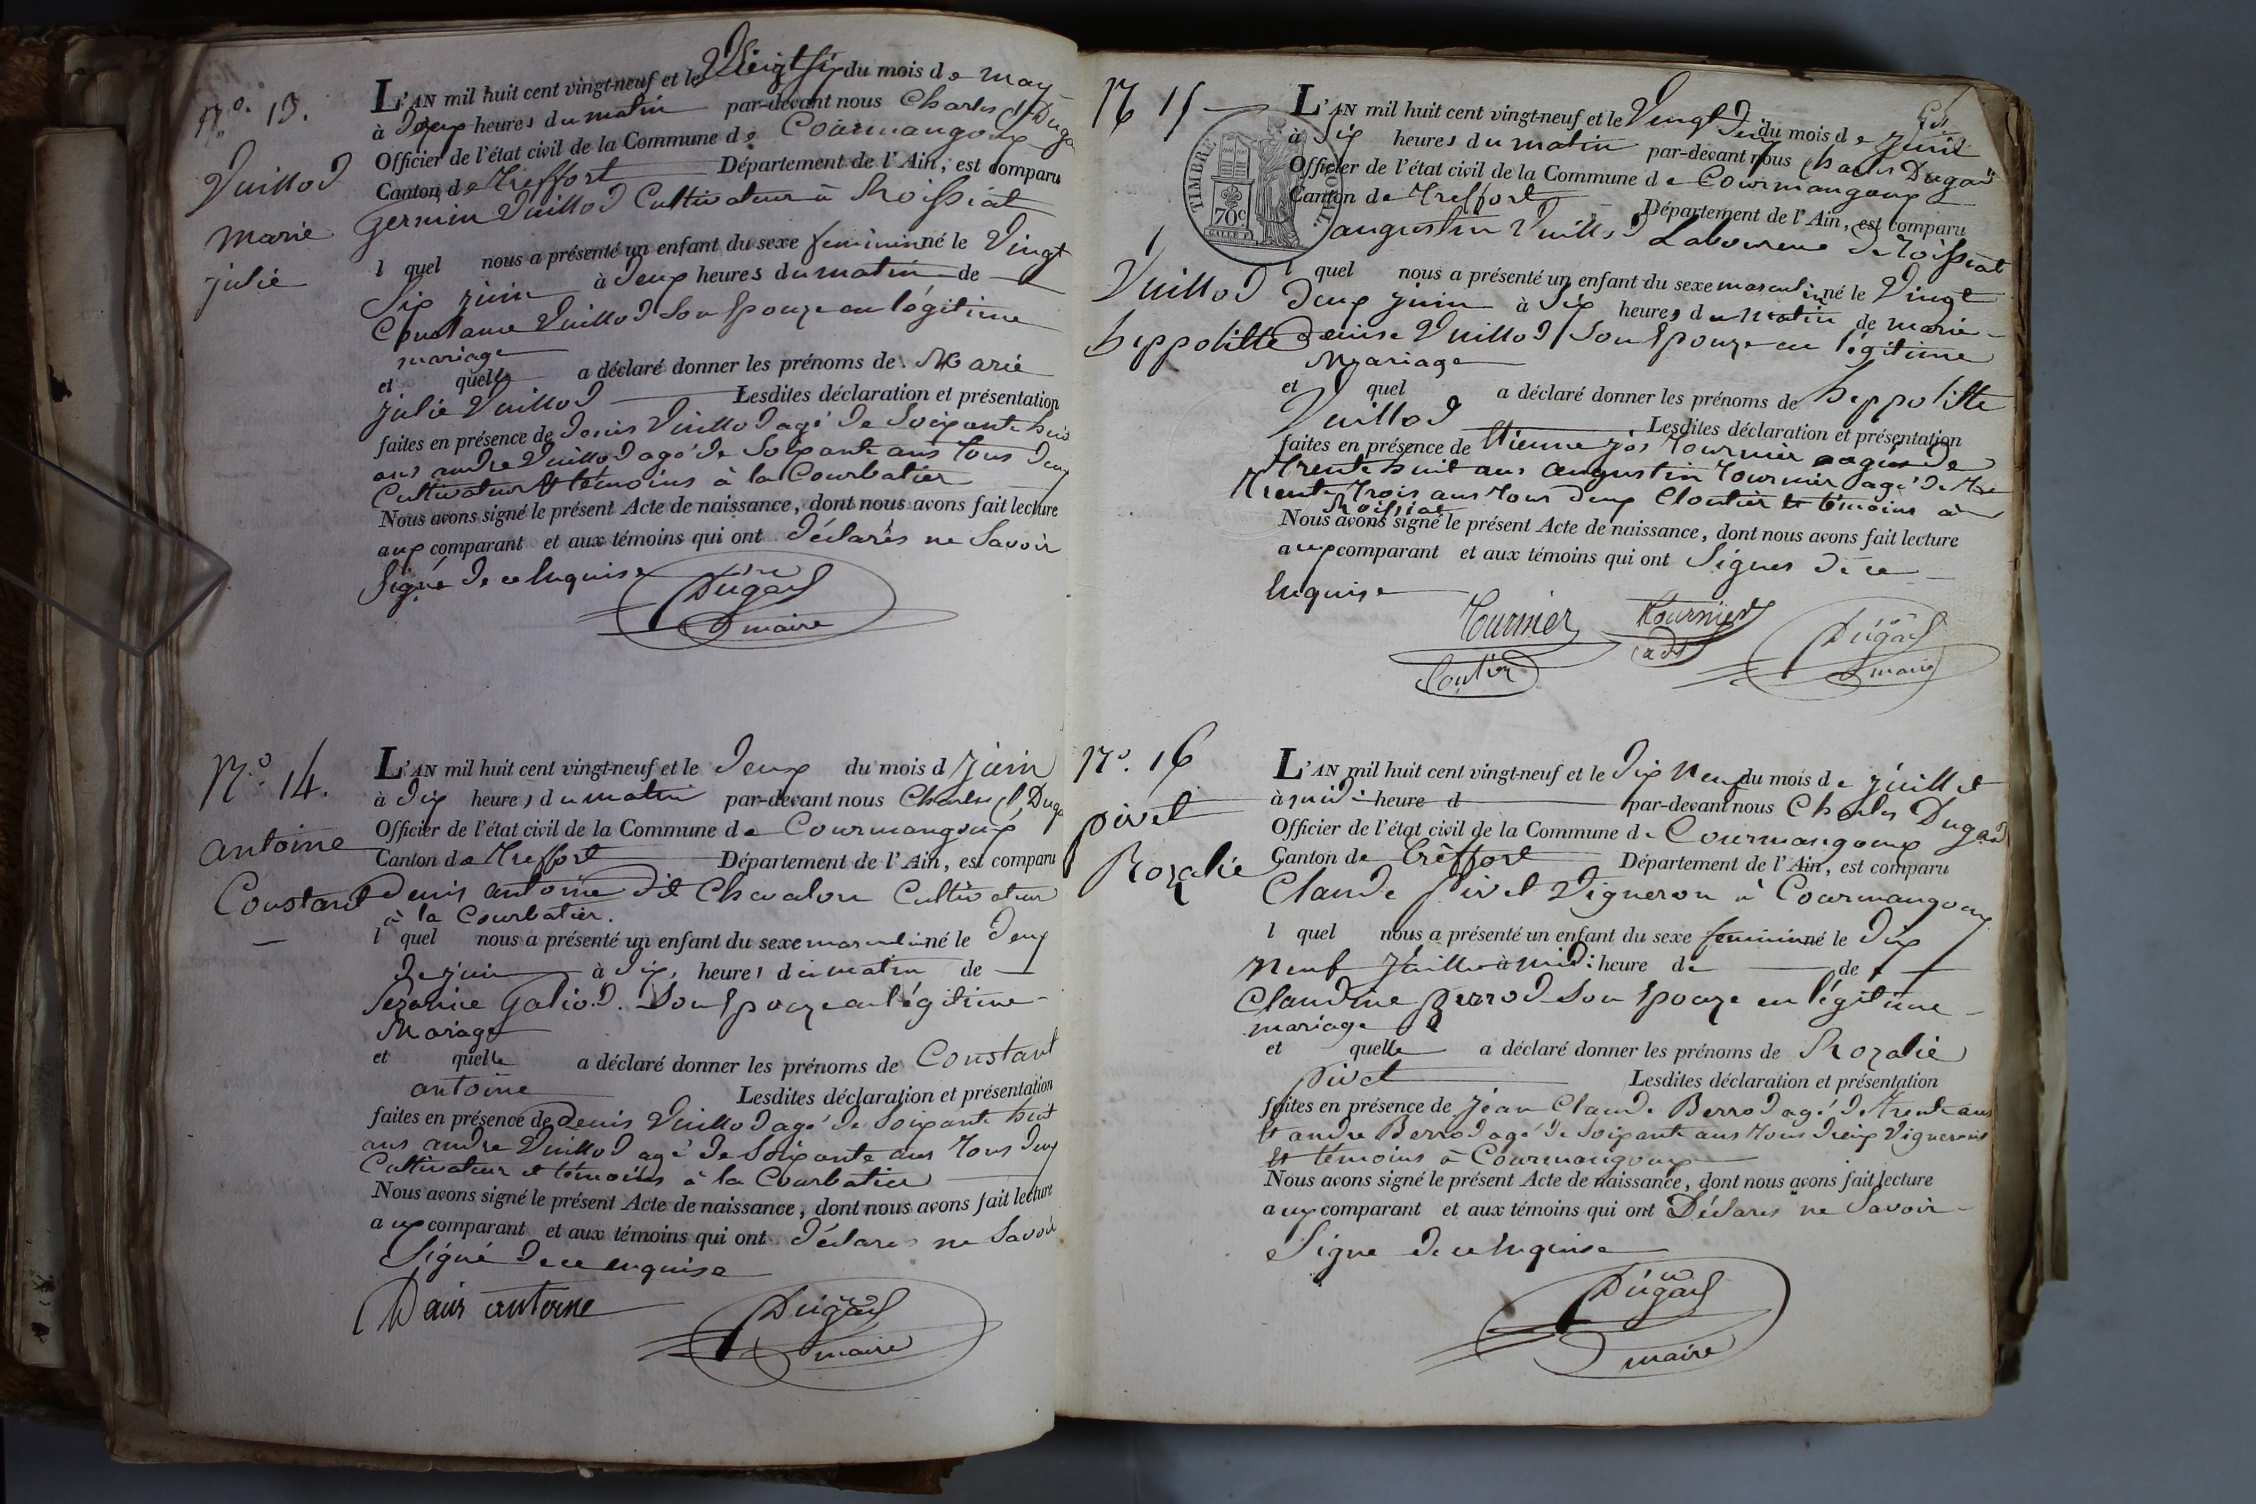 N°. 13.
Vuillod
marie
julie
L'AN mil huit cent vingt-neuf et le Vingt six du mois de may
à deux heures du matin par-devant nous Charles Dugad
Officier de l'état civil de la Commune de Courmangoux
Canton de Treffort Département de l'Ain, est comparu
germin Vuillod Cultivateur à Roissiat
l quel nous a présenté un enfant du sexe feminin né le Vingt
Six juin à deux heures du matin de
Constance Vuillod Son Epouze en légitime
mariage
et quelle a déclaré donner les prénoms de Marie
julie Vuillod Lesdites déclaration et présentation
faites en présence de denis Vuillod agé de Soixante huit
ans andre Vuillod agé de Soixante ans Tous deux
Cultivateur et témoins à la Courbatier
Nous avons signé le présent Acte de naissance, dont nous avons fait lecture
aux comparant et aux témoins qui ont déclarés ne Savoir
Signé de ce Enquise
Dugad
maire
N°. 14.
antoine
Constant
L'AN mil huit cent vingt-neuf et le deux du mois d juin
à dix heures du matin par-devant nous Charles Dugad
Officier de l'état civil de la Commune de Courmangoux
Canton de Treffort Département de l'Ain, est comparu
Denis antoine dit Chavalon Cultivateur
à la Courbatier.
l quel nous a présenté un enfant du sexe masculin né le deux
de juin à dix heures du matin de
Galiod. Son Epouze en légitime
Mariage
et quelle a déclaré donner les prénoms de Constant
antoine Lesdites déclaration et présentation
faites en présence de denis Vuillod agé de Soixante huit
ans andre Vuillod agé de Soixante ans Tous deux
Cultivateur et témoins à la Courbatier
Nous avons signé le présent Acte de naissance, dont nous avons fait lecture
aux comparant et aux témoins qui ont déclarés ne Savoir
Signé de ce enquise
Denis antoine
Dugad
maire
N 15
Vuillod
hippolitte
TIMBRE ROYAL
70c
L'AN mil huit cent vingt-neuf et le Vingt deux du mois de juin
à Six heures du matin par-devant nous Charles Dugad
Officier de l'état civil de la Commune de Courmangoux
Canton de Treffort Département de l'Ain, est comparu
augustin Vuillod Laboureur de Roissiat
l quel nous a présenté un enfant du sexe masculin né le Vingt
deux juin à Six heures du matin de marie
denise Vuillod Son Epouze en légitime
Mariage
et quel a déclaré donner les prénoms de hippolitte
Vuillod Lesdites déclaration et présentation
faites en présence de Etienne jos Tournier agés de
Trente huit ans augustin Tournier agé de
Trente Trois ans Tous deux Cloutier et témoins à
Roissiat
Nous avons signé le présent Acte de naissance, dont nous avons fait lecture
aux comparant et aux témoins qui ont Signés de ce
Enquise
Tournier
Cloutier
Tournier
Dugad
maire
N°. 16
pivet
Rozalie
L'AN mil huit cent vingt-neuf et le dix Neuf du mois de juillet
à midi heure d par-devant nous Charles Dugad
Officier de l'état civil de la Commune de Courmangoux
Canton de Trèffort Département de l'Ain, est comparu
Claude pivet Vigneron à Courmangoux
l quel nous a présenté un enfant du sexe feminin né le dix
Neuf juillet à midi heure de de
Claudine perrod Son Epouze en légitime
mariage
et quelle a déclaré donner les prénoms de Rozalie
pivet Lesdites déclaration et présentation
faites en présence de jean Claude Berrod agé de Trente ans
et andre Berrod agé de Soixante ans Tous deux Vignerons
et témoins à Courmangoux
Nous avons signé le présent Acte de naissance, dont nous avons fait lecture
aux comparant et aux témoins qui ont Déclarés ne Savoir
Signe de ce Enquise
Dugad
maire